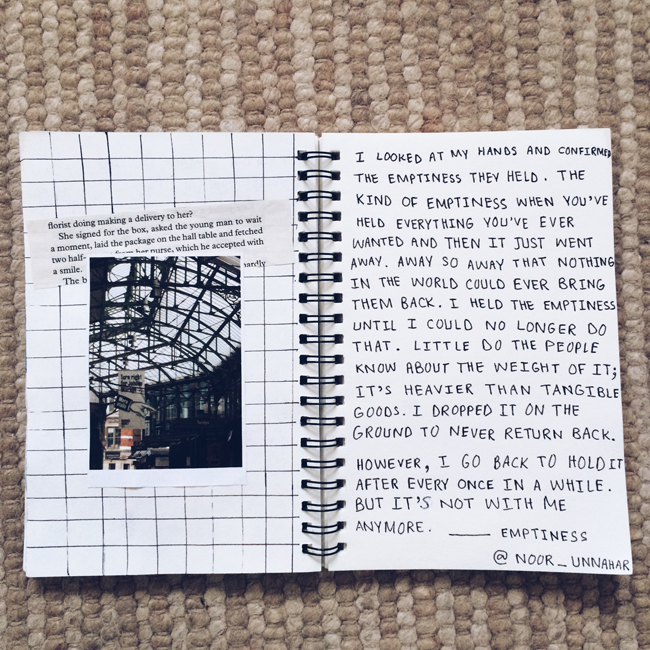 florist doing making a delivery to her?
She signed for the box, asked the young man to wait
a moment, laid the package on the hall table and fetched
two half- from her purse, which he accepted with
a smile. hardly
The b
I LOOKED AT MY HANDS AND CONFIRMED
THE EMPTINESS THEY HELD. THE
KIND OF EMPTINESS WHEN YOU'VE
HELD EVERYTHING YOU'VE EVER
WANTED AND THEN IT JUST WENT
AWAY. AWAY SO AWAY THAT NOTHING
IN THE WORLD COULD EVER BRING
THEM BACK. I HELD THE EMPTINESS
UNTIL I COULD NO LONGER DO
THAT. LITTLE DO THE PEOPLE
KNOW ABOUT THE WEIGHT OF IT;
IT'S HEAVIER THAN TANGIBLE
GOODS. I DROPPED IT ON THE
GROUND TO NEVER RETURN BACK.
HOWEVER, I GO BACK TO HOLD IT
AFTER EVERY ONCE IN A WHILE.
BUT IT'S NOT WITH ME
ANYMORE. —— EMPTINESS
@ NOOR_UNNAHAR